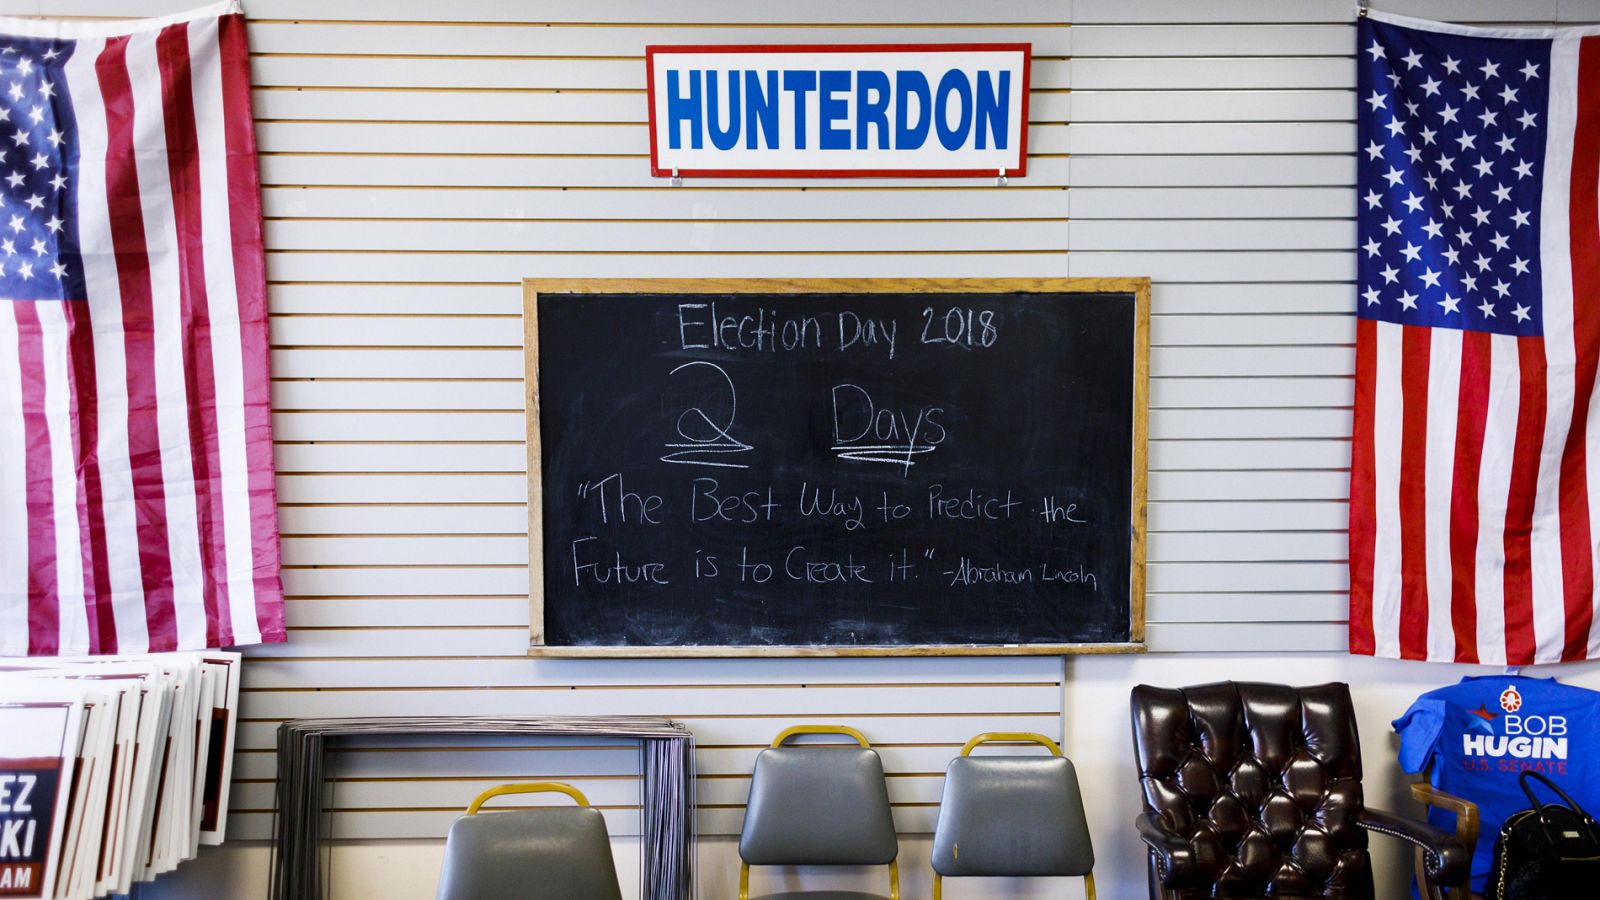 HUNTERDON
Election Day 2018
2 Days
"The Best Way to Predict the
Future is to Create it." -Abraham Lincoln
BOB
HUGIN
U.S. SENATE
EZ
KI
AM